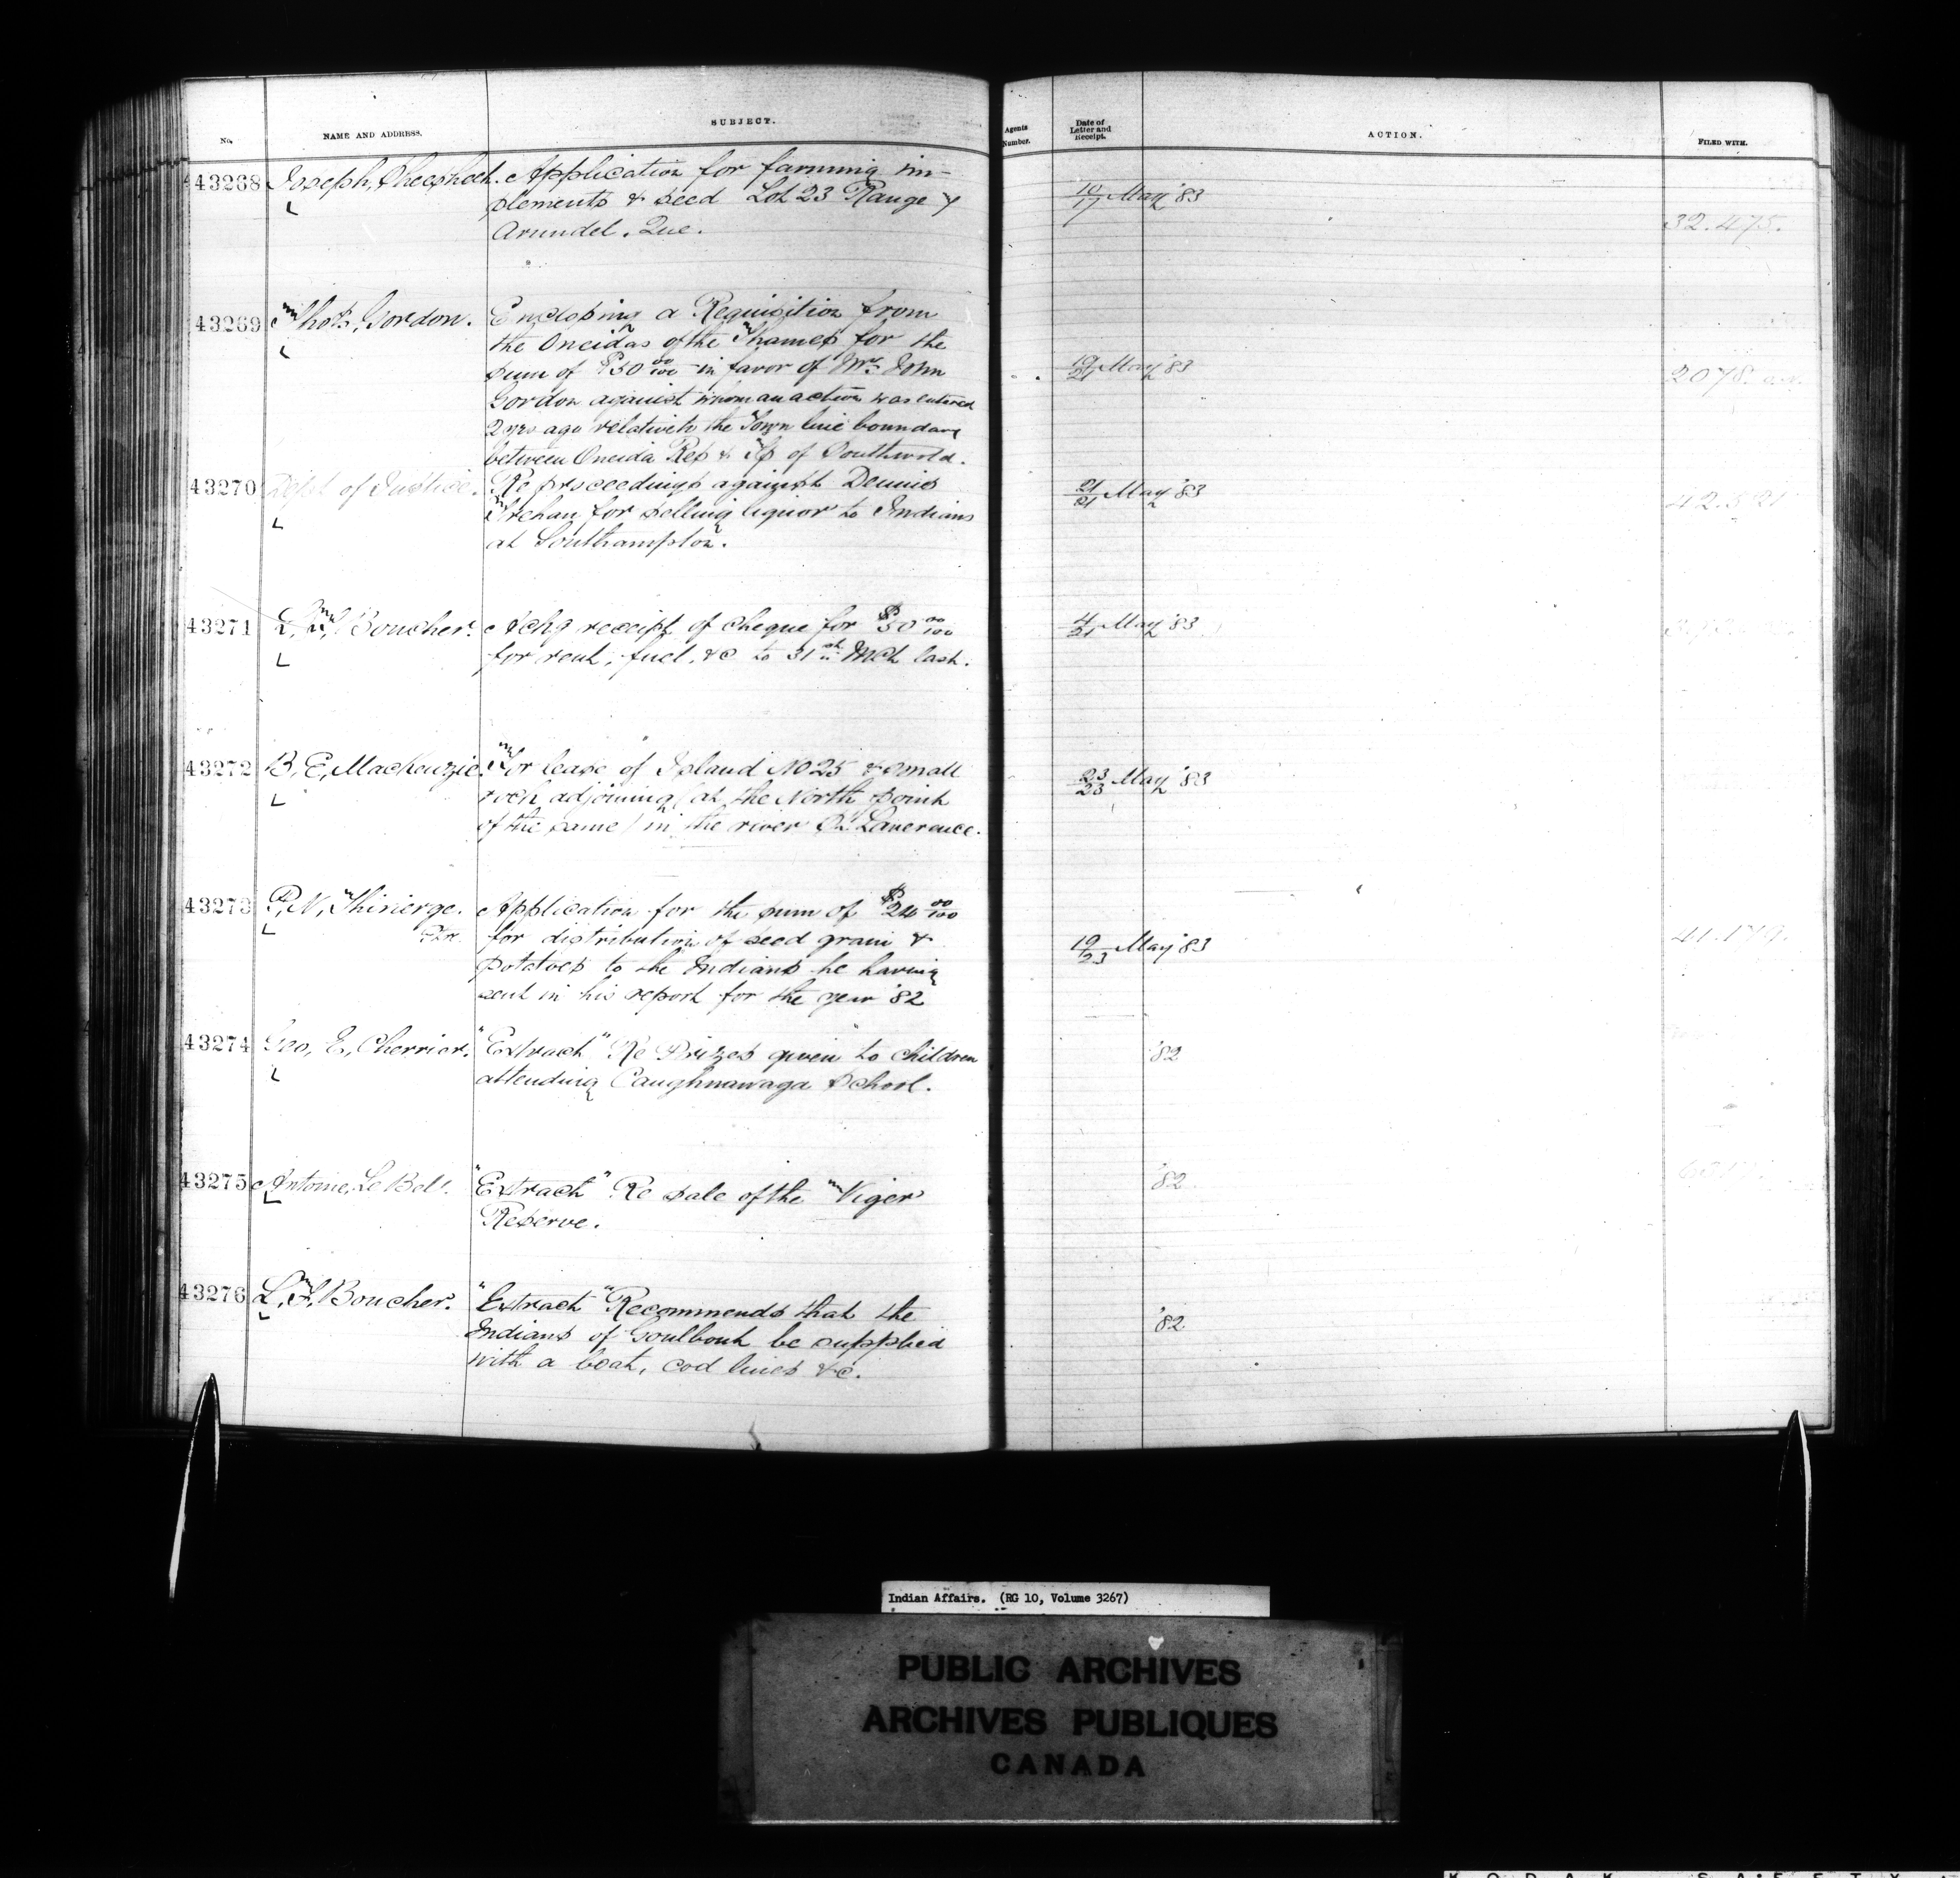 No.
NAME AND ADDRESS.
SUBJECT.
Agents Number.
Date of Letter and Receipt.
ACTION.
FILED WITH.
43268 Joseph, Application for farming im-
plements & seed Lot 23 Range
Arundel. Que.
10/17 May '83
32.475.
43269 Thos, Gordon. Enclosing a Requisition from
the Oneidas of the Thames for the
sum of $50 00/100 in favor of Mr. John
Gordon against whom an action was entered
2 yrs ago relative to the Town line boundary
between Oneida Res & Tp of Southwold.
19/21 May '83
2078.
43270 Dept of Justice. Re proceedings against Dennis
for selling liquor to Indians
at Southampton.
21/21 May '83
43271 L, F, Boucher. Ackg receipt of cheque for $50 00/100
for rent, fuel, &c to 31st Mch last.
4/21 May '83
43272 B, E, MacKenzie. For lease of Island No 25 & small
rock adjoining (at the North point
of the same) in the river St Lawrence.
23/23 May '83
43273 P, N, Thivierge. Application for the sum of $24 00/100
Ptre. for distribution of seed grain &
potatoes to the Indians he having
sent in his report for the year '82
19/23 May '83
41.179.
43274 Geo, E, Cherrier. "Extract" Re Prizes given to children
attending Caughnawaga School.
'82
43275 Antoine, Le Bell. "Extract" Re sale of the Viger
Reserve.
'82
43276 L, F, Boucher. "Extract" Recommends that the
Indians of be supplied
with a boat, cod lines &c.
'82
Indian Affairs. (RG 10, Volume 3267)
PUBLIC ARCHIVES
ARCHIVES PUBLIQUES
CANADA